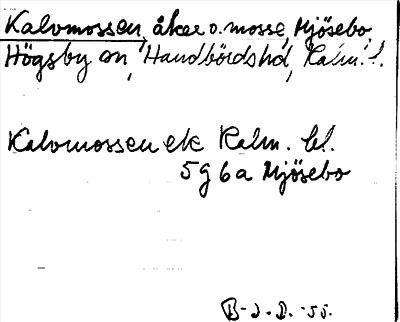 Kalvmossen, åker o. mosse, Mjösebo,
Högsby sn, Handbörds hd, Kalm. l.
Kalvmossen ek Kalm. bl.
5 g 6 a Mjösebo